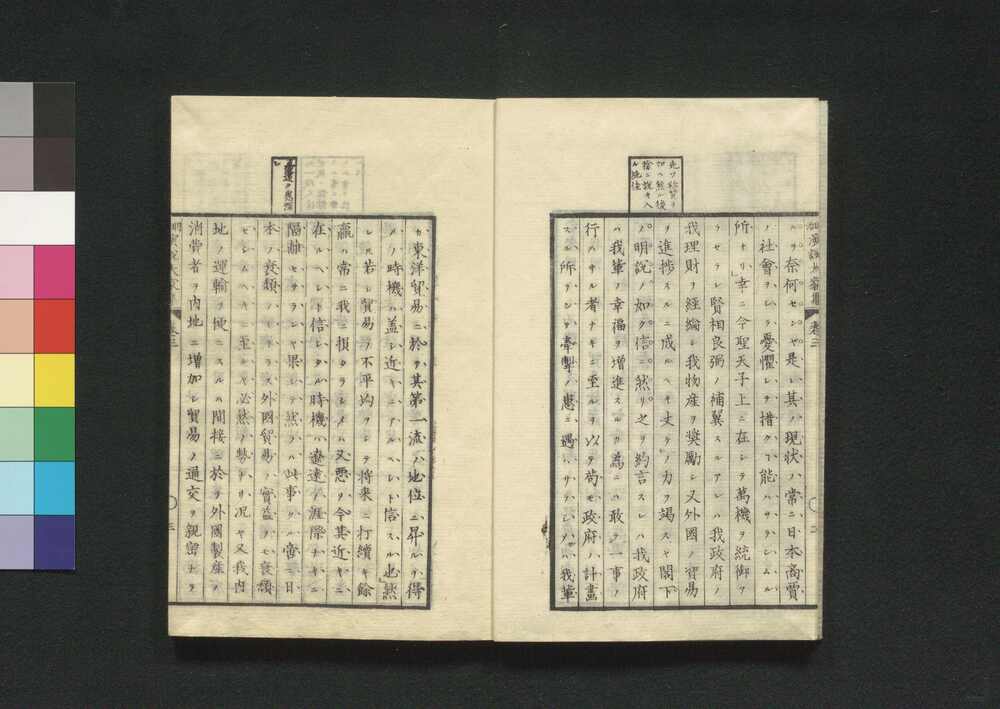 先ツ称賛ヲ
加ヘ然ル後
徐ニ説キ入
ル純然
ハヲ奈何セン。ヤ是レ其ノ現状ハ常ニ日本商賈
ノ社會ヲシテ憂懼シテ措ク能ハサラシムル
所ナリ」幸ニ今聖天子上ニ在シテ萬機ヲ統御
ラセラレ賢相良弼ノ補翼スルアレハ我政府ノ
我理財ヲ經綸シ我物産ヲ奨勵シ又外國ノ貿易
ヲ進捗スルニ成ルヘキ丈ケノ力ヲ竭スヤ閣下
ノ明説ノ如ク信ニ然リ之ヲ約言スレハ我政府
ハ我輩ノ幸福ヲ増進スルガ為ニハ敢テ一事ノ
行ハサル者ナキニ至ルヲ以テ苟モ政府ノ計畫
スル所ヲシテ牽掣ノ患ニ遇ハサラシメハ我輩
カ東洋貿易ニ於テ其第一流ノ地位ニ昇ルヲ得
ルノ時機ハ盖シ近キニアルヘシト信スル也」然
レ𪜈若シ貿易ヲ不平均ヲシテ将来ニ打續キ餘
贏ハ常ニ我ニ損カラシメハ又悪ク今其近キニ
在ルヘシト信シタルノ時機ハ遼遠ノ涯際ナキニ
隔離セサランヤ果シテ然ラハ此事タル啻ニ日
本ノ衰頽ノミナラス外國貿易ノ實益ヲモ衰頽
セシムヘキニ至ルヤ必然ノ勢ナリ况ヤ又我内
地ノ運輸ヲ便ニスルハ間接ニ於テ外國製産ノ
消費者ヲ内地ニ増加シ貿易ノ通交ヲ親密ナラ